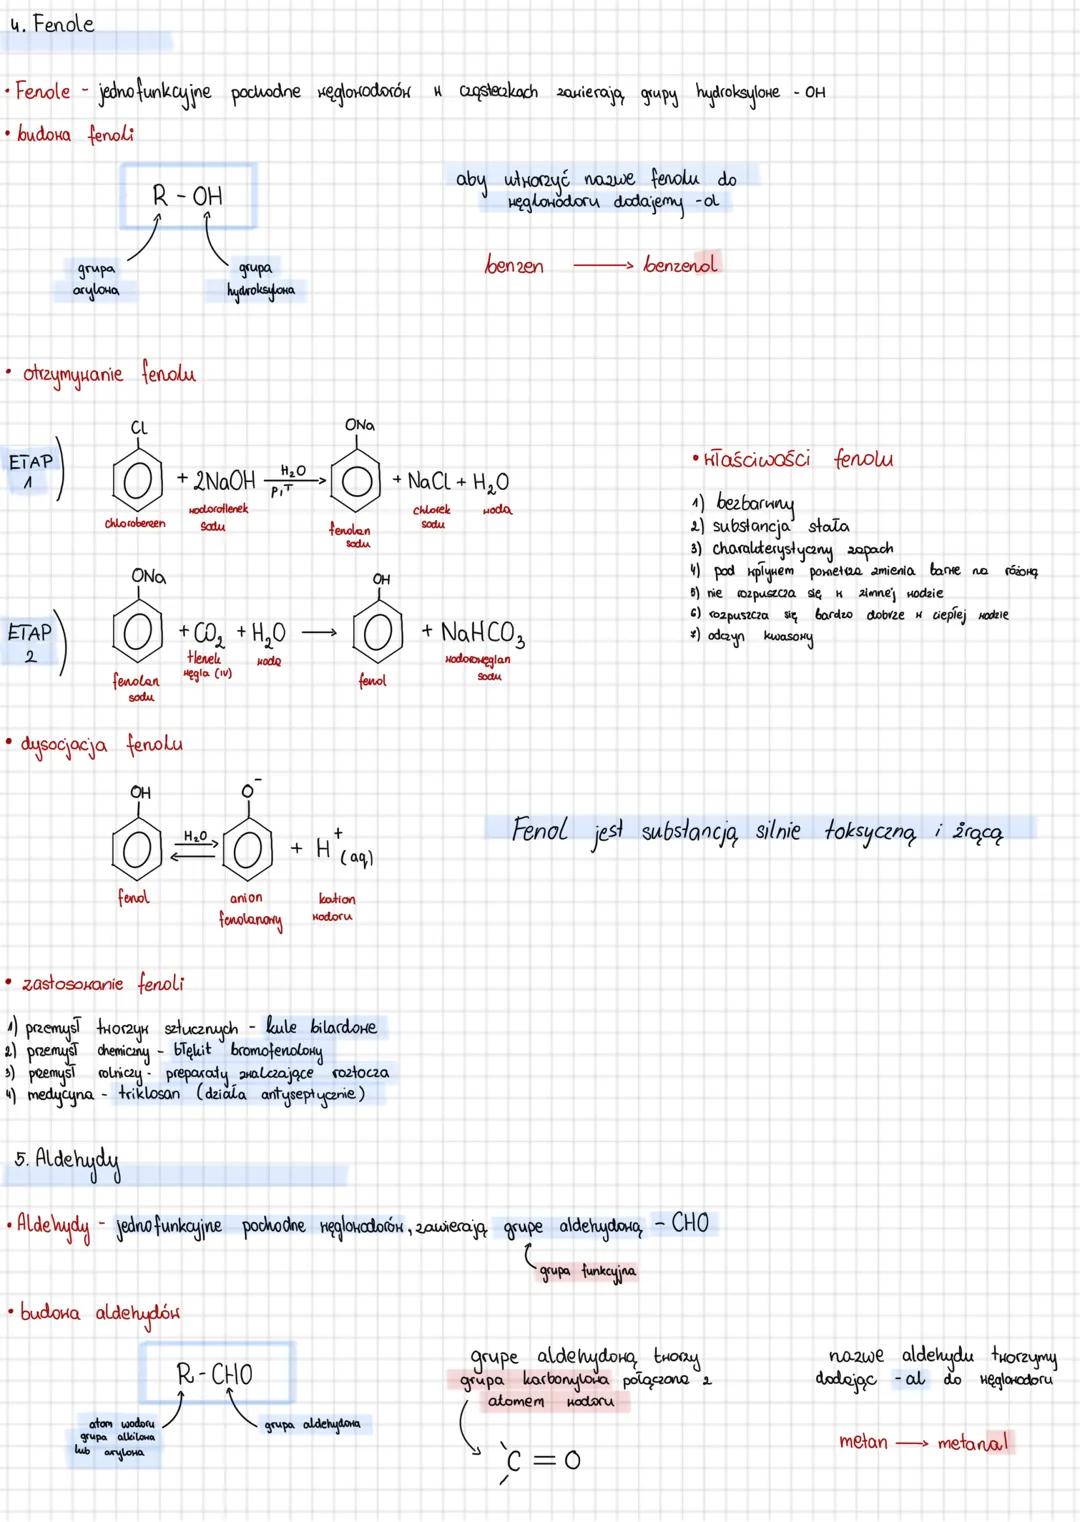 4. Fenole
• Fenole - jednofunkcyjne pochodne węglowodorów w cząsteczkach zawierają grupy hydroksylowe - OH
• budowa fenoli
R - OH
grupa
arylowa
grupa
hydroksylowa
aby utworzyć nazwe fenolu do
węglowodoru dodajemy -ol
benzen → benzenol
• otrzymywanie fenolu
ETAP
1
Cl
+ 2NaOH
H₂O
p,T
→
ONa
+ NaCl + H₂O
chlorobenzen
wodorotlenek
sodu
fenolan
sodu
chlorek
sodu
woda
ETAP
2
ONa
+ CO₂ + H₂O →
OH
+ NaHCO₃
fenolan
sodu
tlenek
węgla (IV)
woda
fenol
wodorowęglan
sodu
• właściwości fenolu
1) bezbarwny
2) substancja stała
3) charakterystyczny zapach
4) pod wpływem powietrza zmienia barwe na różową
5) nie rozpuszcza się w zimnej wodzie
6) rozpuszcza się bardzo dobrze w ciepłej wodzie
7) odczyn kwasowy
• dysocjacja fenolu
OH
H₂O
⇌
O⁻
+ H⁺(aq)
fenol
anion
fenolanowy
kation
wodoru
Fenol jest substancją silnie toksyczną i żrącą
• zastosowanie fenoli
1) przemysł tworzyw sztucznych - kule bilardowe
2) przemysł chemiczny - błękit bromofenolowy
3) przemysł rolniczy - preparaty zwalczające roztocza
4) medycyna - triklosan (działa antyseptycznie)
5. Aldehydy
• Aldehydy - jednofunkcyjne pochodne węglowodorów, zawierają grupe aldehydową - CHO
grupa funkcyjna
• budowa aldehydów
R - CHO
atom wodoru
grupa alkilowa
lub arylowa
grupa aldehydowa
grupe aldehydową tworzy
grupa karbonylowa połączona z
atomem wodoru
C = O
nazwe aldehydu tworzymy
dodając -al do węglowodoru
metan → metanal